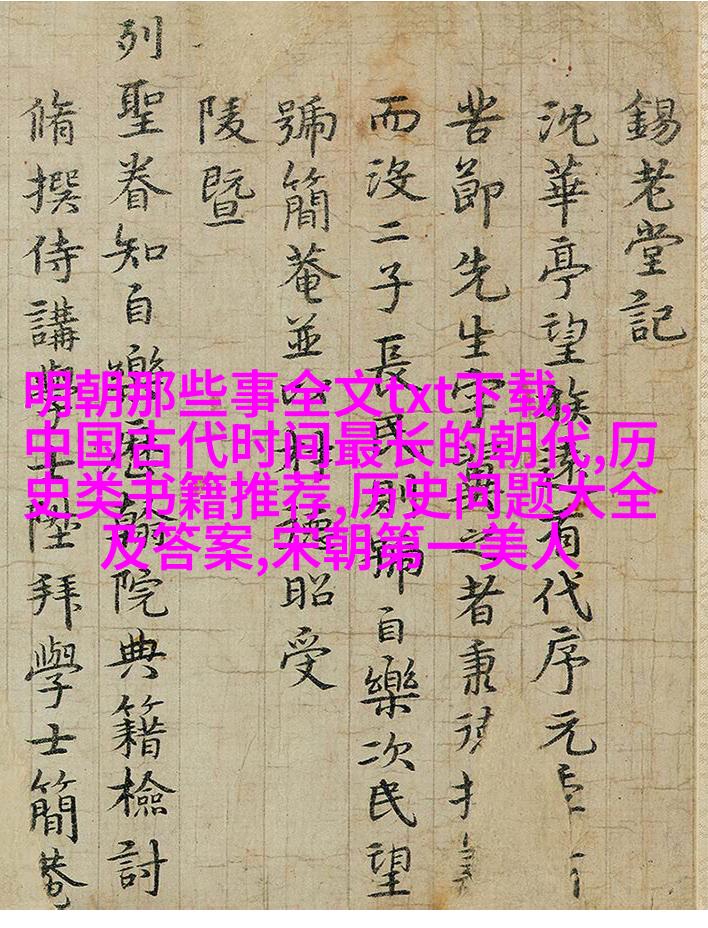 錫老堂記
沈華亭望族有代序元
苦節先生字之者秉
而沒二子長民則號自樂次民望
號簡菴並以材德昭受
陵暨
列聖眷知自樂歷翰院典籍檢討
脩撰侍講學士陞拜學士簡菴
明朝那些事全文txt下载,
中国古代时间最长的朝代,历
史类书籍推荐,历史问题大全
及答案,宋朝第一美人